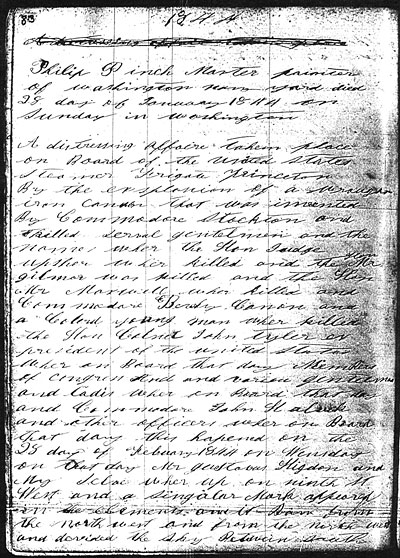 83
1844
Philip P inch Master painter
of washington navy yard died
28 day of January 1844 on
Sunday in washington
A distressing affaire taken place
on Board of the united States
Steamer Frigate Princeton
By the explosion of a
iron Cannon that was invented
By Commodore Stockton and
killed several gentelmen and the
Names wher the Hon Judge
upsher wher killed and the
gilmor was killed and the Hon
Mr Maxwell wher killed and
Commodore Canon and
a Colord young man wher killed
the Hon John tyler
president of the united States
wher on Board that day Members
of Congress and and varios gentelmen
and ladis wher on Board that day
and Commodore John
and other officers wher on Board
that day this hapened on the
28 day of Febuary 1844 on Wensday
on that day Mr gustavus Higdon and
My Selve wher up on ninth St
West and a Singular Mark appeared
in the elements and it Ran from
the north west and from the north west
and devided the Sky Between South